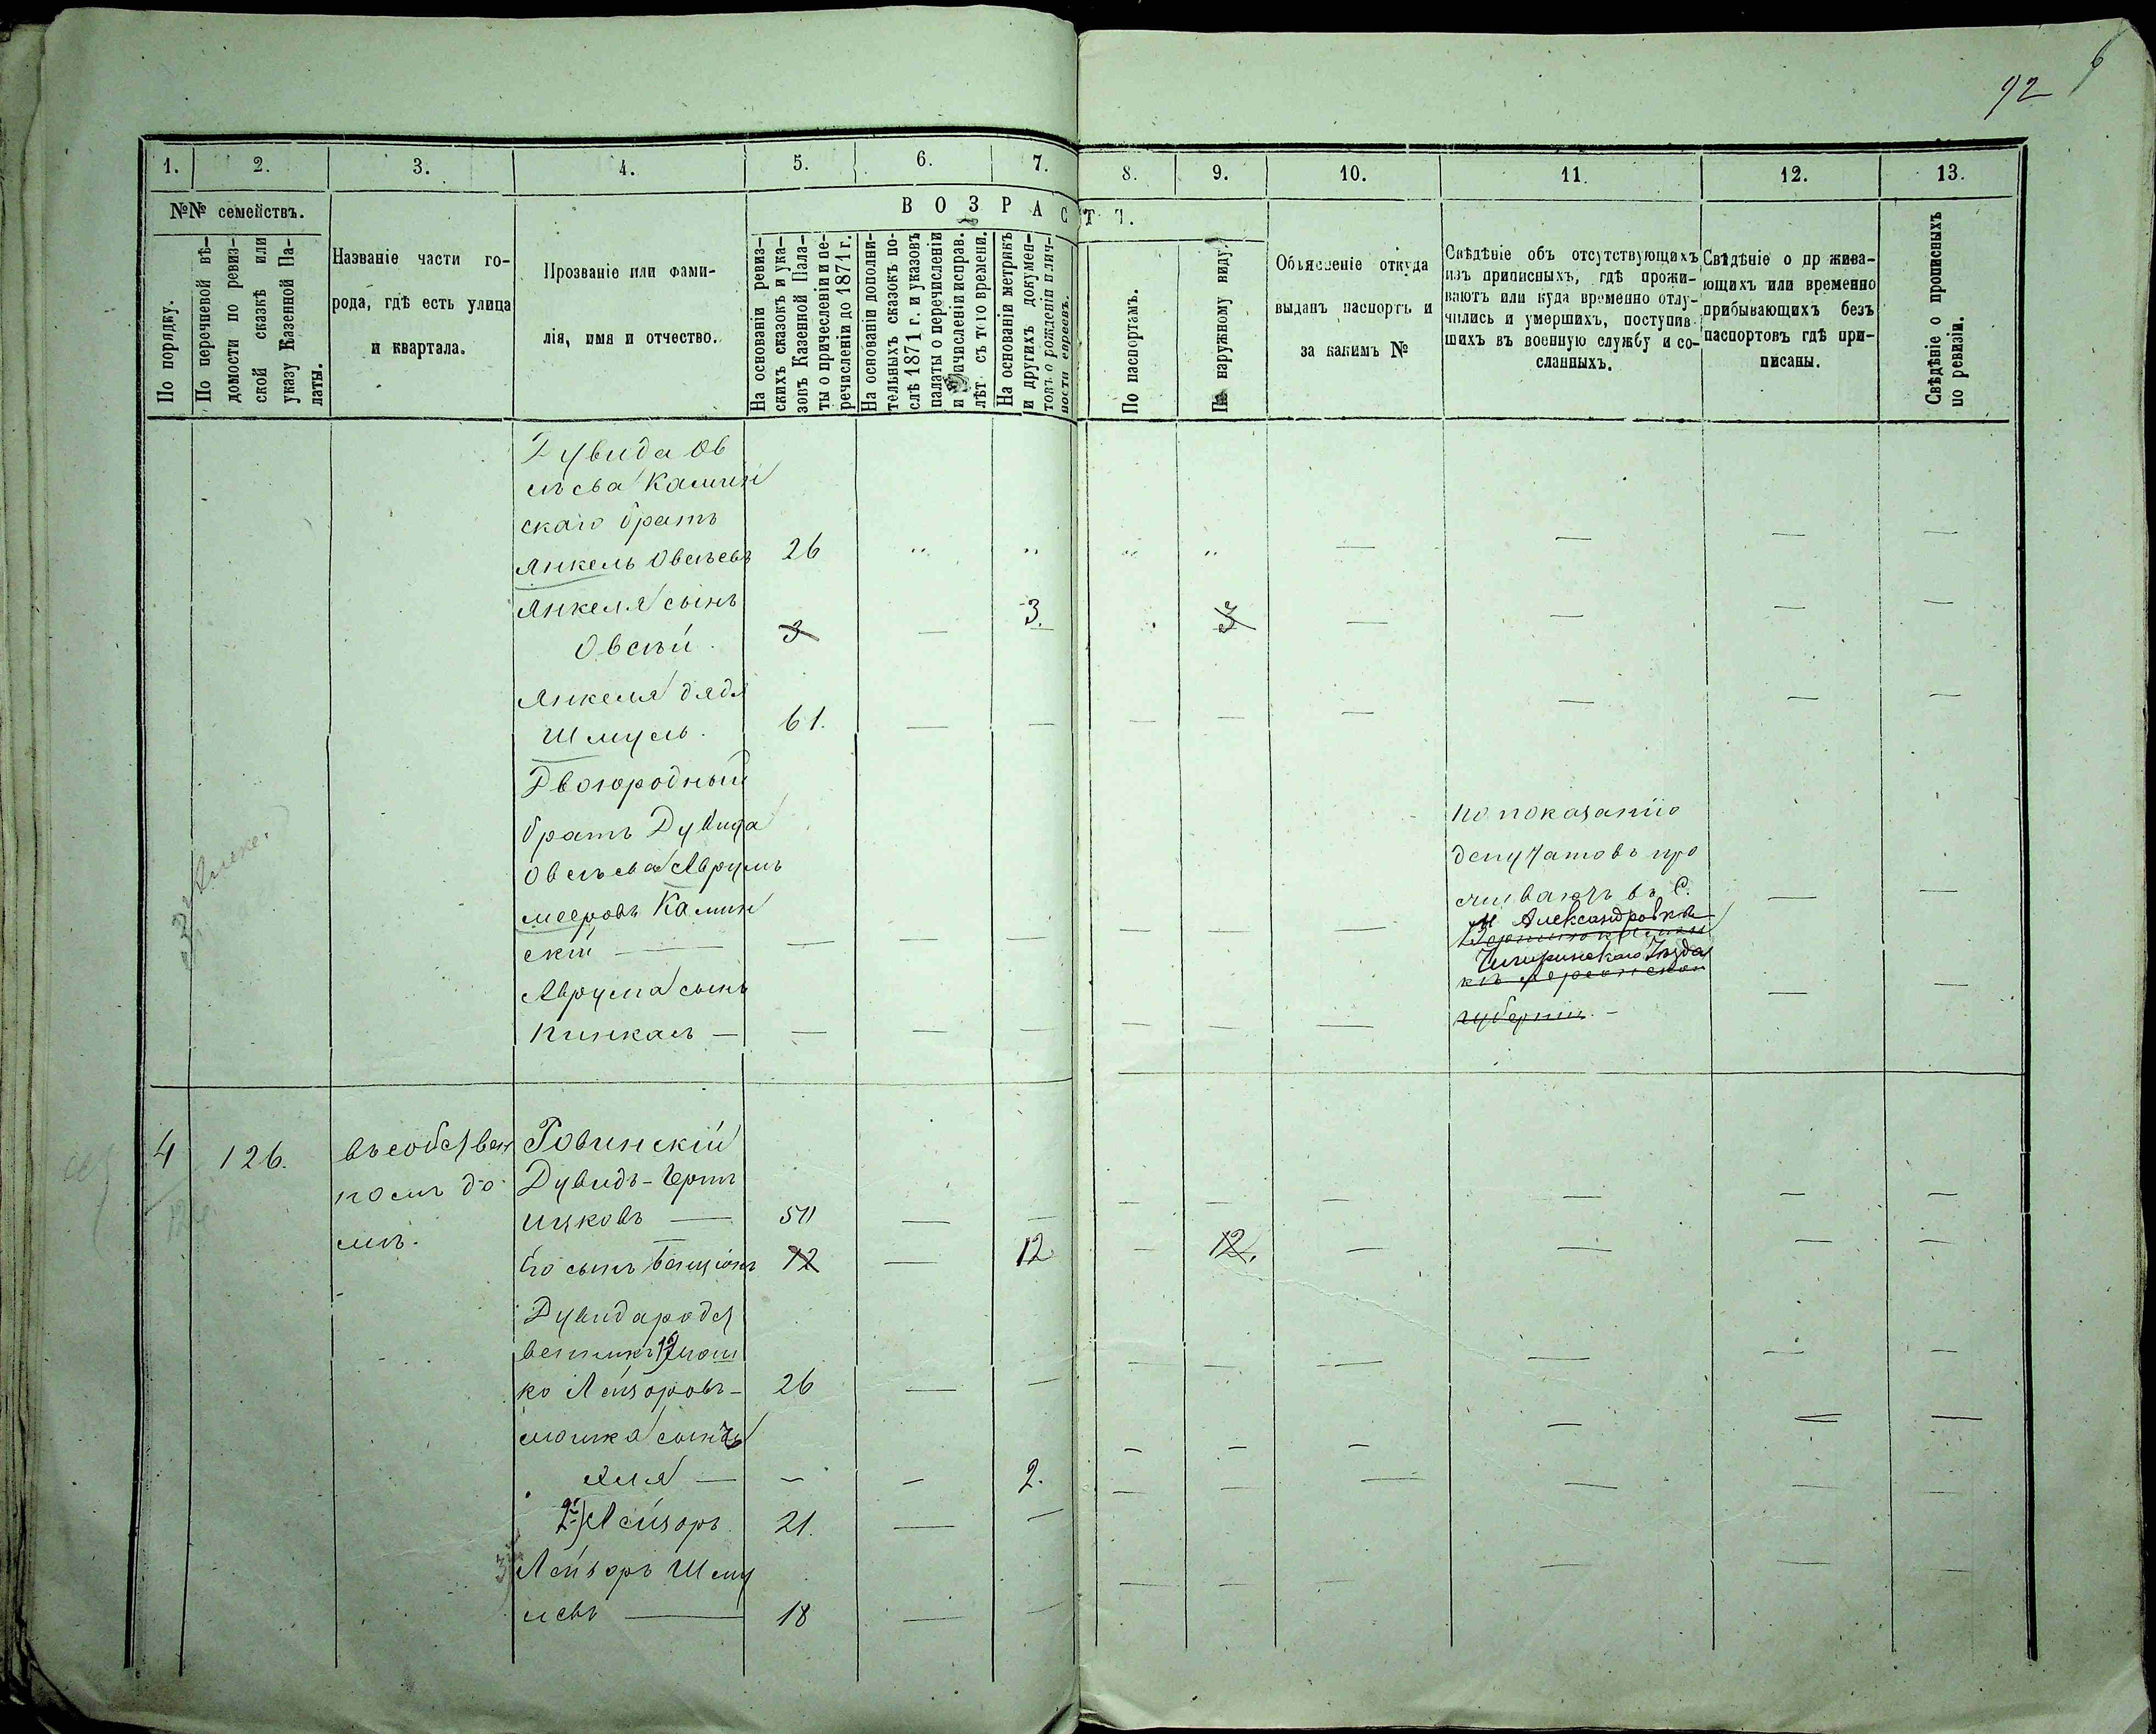 92
6
1. 2. 3. 4. 5. 6. 7. 8. 9. 10. 11. 12. 13.
№№ семействъ.
По порядку.
По перечневой вѣ-
домости по ревиз-
ской сказкѣ или
указу Казенной Па-
латы.
Названіе части го-
рода, гдѣ есть улица
и квартала.
Прозваніе или фами-
лія, имя и отчество.
ВОЗРАСТЪ.
На основаніи ревиз-
скихъ сказокъ и ука-
зовъ Казенной Пала-
ты о причесленіи и пе-
речисленіи до 1871 г.
На основаніи дополни-
тельныхъ сказокъ по-
слѣ 1871 г. и указовъ
палаты о перечисленіи
и причисленіи исправ.
лѣт съ того времени.
На основаніи метрикъ
и другихъ докумен-
товъ о рожденіи и лич-
ности евреевъ.
По паспортамъ.
По наружному виду.
Объясненіе откуда
выданъ паспортъ и
за какимъ №
Свѣдѣніе объ отсутствующихъ
изъ приписныхъ, гдѣ прожи-
ваютъ или куда временно отлу-
чились и умершихъ, поступив-
шихъ въ военную службу и со-
сланныхъ.
Свѣдѣніе о пр жива-
ющихъ или временно
прибывающихъ безъ
паспортовъ гдѣ при-
писаны.
Свѣдѣніе о прописныхъ
по ревизіи.
Дувида Ов
сѣева Камин
скаго братъ
Янкель Овсѣевъ 26 " " " " — — — —
Янкеля сынъ
Овсѣй. 3 — 3. 3 — — — —
Янкеля дядя
Шмуль. 61. — — — — — — — —
Двоюродный
братъ Дувида
Овсѣева Аврумъ
Мееровъ Камин
скій — — — — — — — — —
Аврума сынъ
Пинкасъ — — — — — — — — —
по показанію
депутатовъ про
живаютъ въ С.
Александровкѣ
Чигиринскаго Уѣзда
Херсонской
губерніи. —
4 126. въ собствен
номъ до
мѣ.
Ровинскій
Дувидъ-Герш
Ицковъ — 50 — — — — — — — —
Его сынъ Бенціонъ 12 — 12 — 12. — — — —
Дувида родст
венникъ 1) Мош
ко Лейзоровъ — 26 — — — — — — — —
Мошка сынъ
Аля — — — 2. — — — — — —
2й) Лейзоръ 21. — —
Лейзоръ Шму
левъ — 18 — — — — — — — —